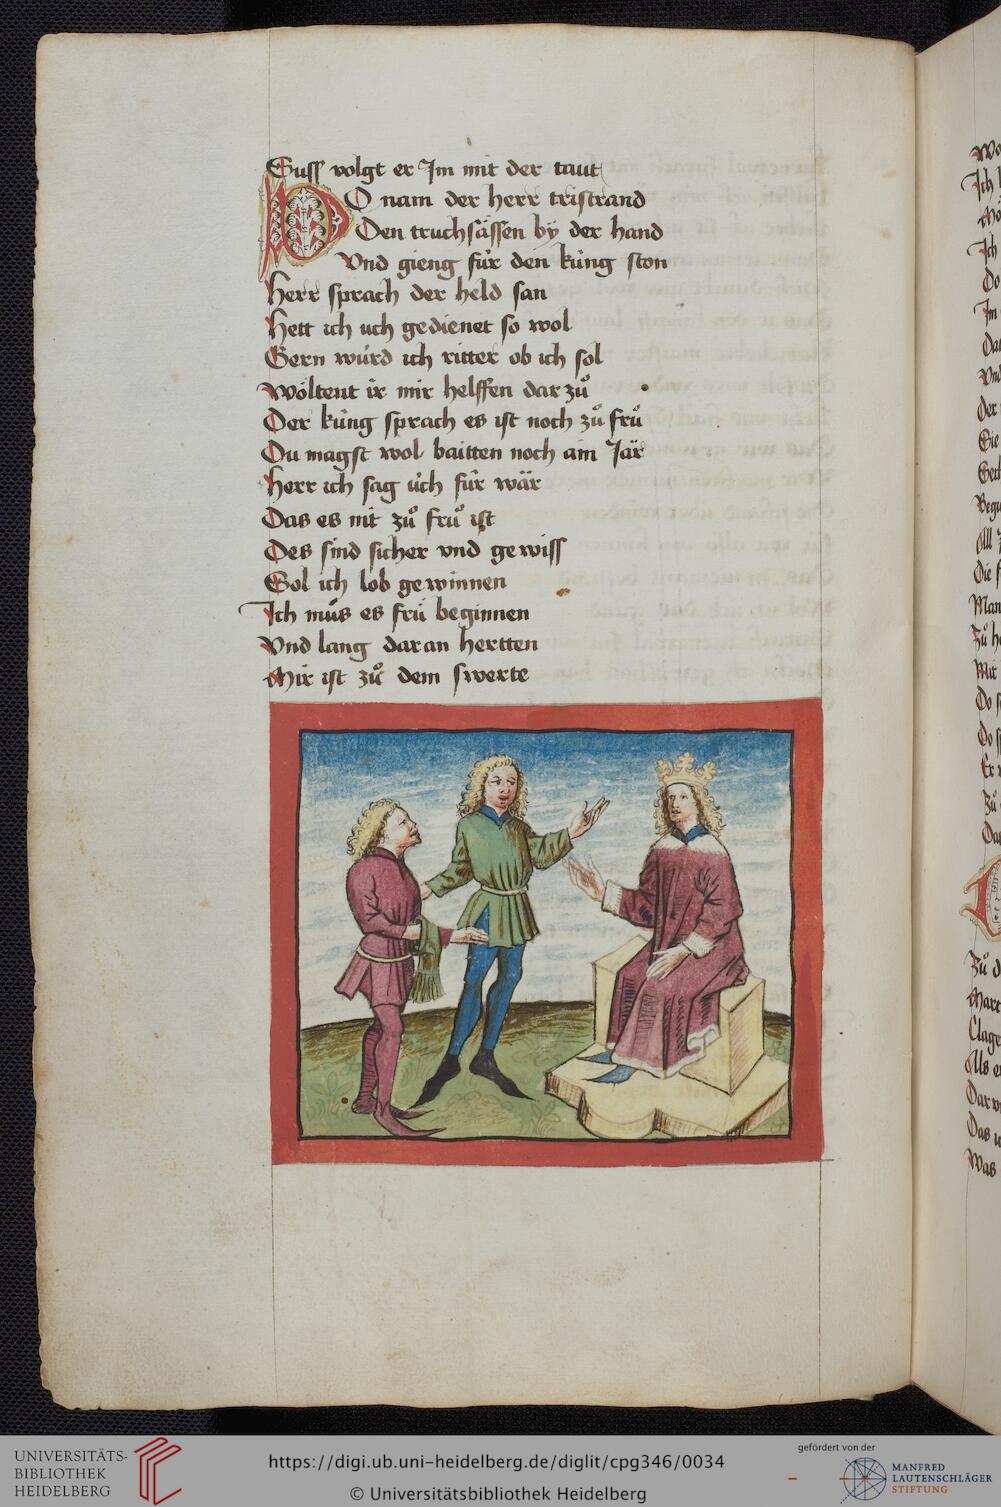 Suss volgt er Im mit der taut
DO nam der herr tristrand
Den truchsässen by der hand
Vnd gieng für den küng ston
Herr sprach der held san
Hett ich uch gedienet so wol
Gern würd ich ritter ob ich sol
Wöltent ir mir helffen dar zuͦ
Der küng sprach es ist noch zuͦ fruͦ
Du magst wol baitten noch ain Jär
Herr ich sag üch für wär
Das es nit zuͦ fruͦ ist
Des sind sicher vnd gewiss
Sol ich lob gewinnen
Ich muͦs es frü beginnen
Vnd lang daran hertten
Mir ist zuͦ dem swerte
UNIVERSITÄTS-
BIBLIOTHEK
HEIDELBERG
https://digi.ub.uni-heidelberg.de/diglit/cpg346/0034
© Universitätsbibliothek Heidelberg
gefördert von der
MANFRED
LAUTENSCHLÄGER
STIFTUNG